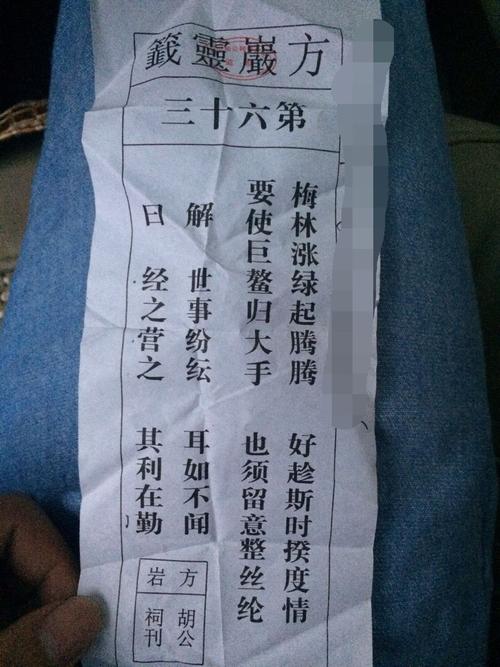 方巖靈籤
第六十三
梅林涨绿起腾腾 好趁斯时揆度情
要使巨鳌归大手 也须留意整丝纶
解 世事纷纭 耳如不闻
曰 经之营之 其利在勤
方 胡公
岩 祠刊